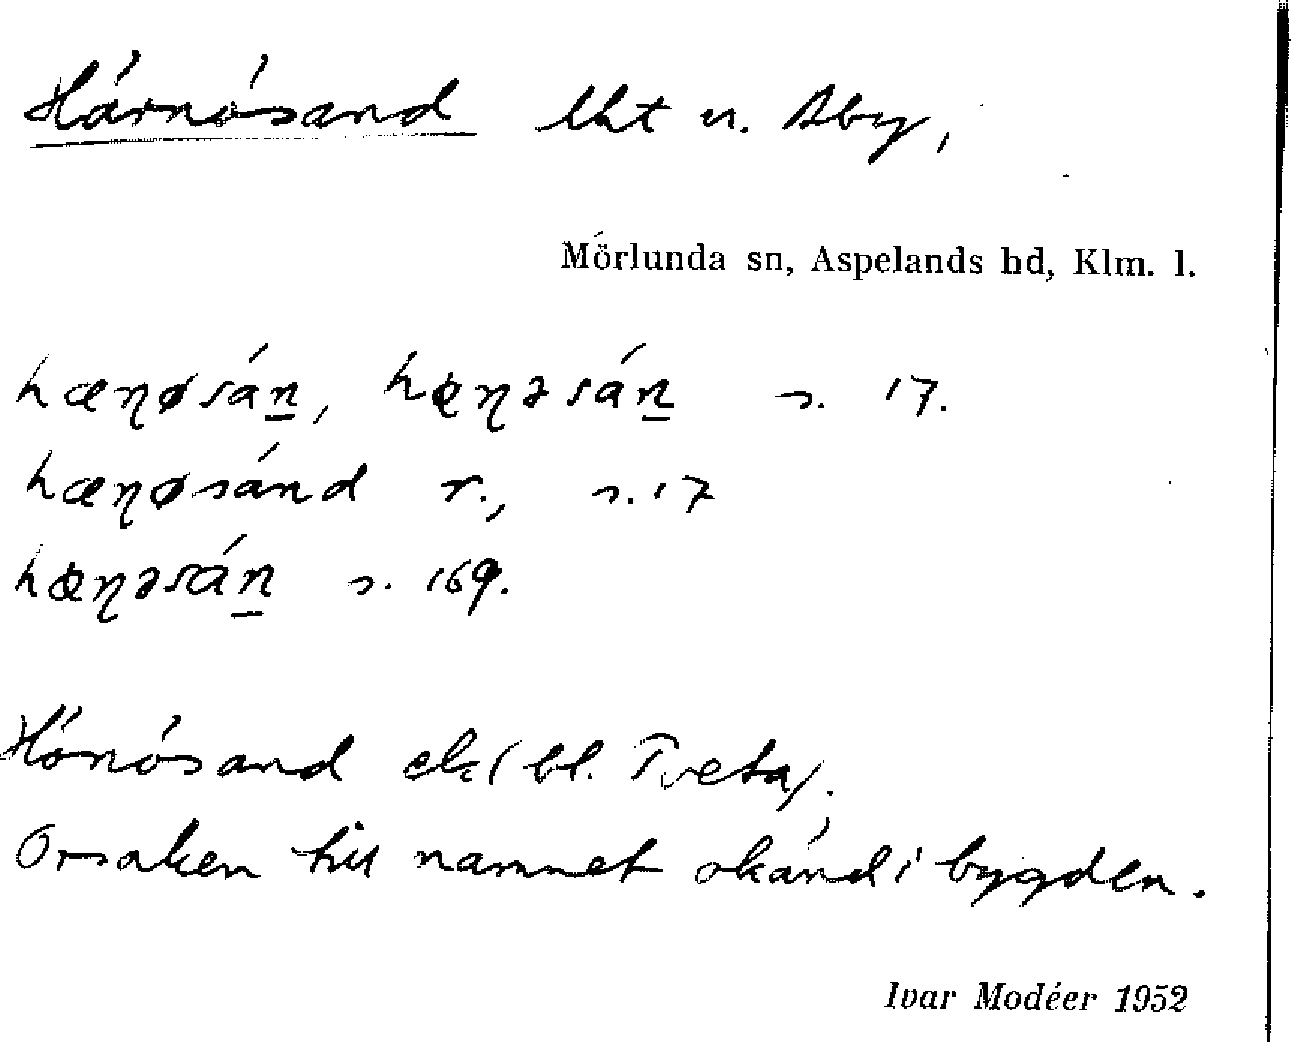 Härnösand lht u. Åby,
Mörlunda sn, Aspelands hd, Klm. l.
hæƞøsán̲, hæƞəsán̲ s. 17.
hæƞøsánd r., s. 17
hæƞəsán̲ s. 169.
Hönösand ek (bl. Tveta).
Orsaken till namnet okänd i bygden.
Ivar Modéer 1952